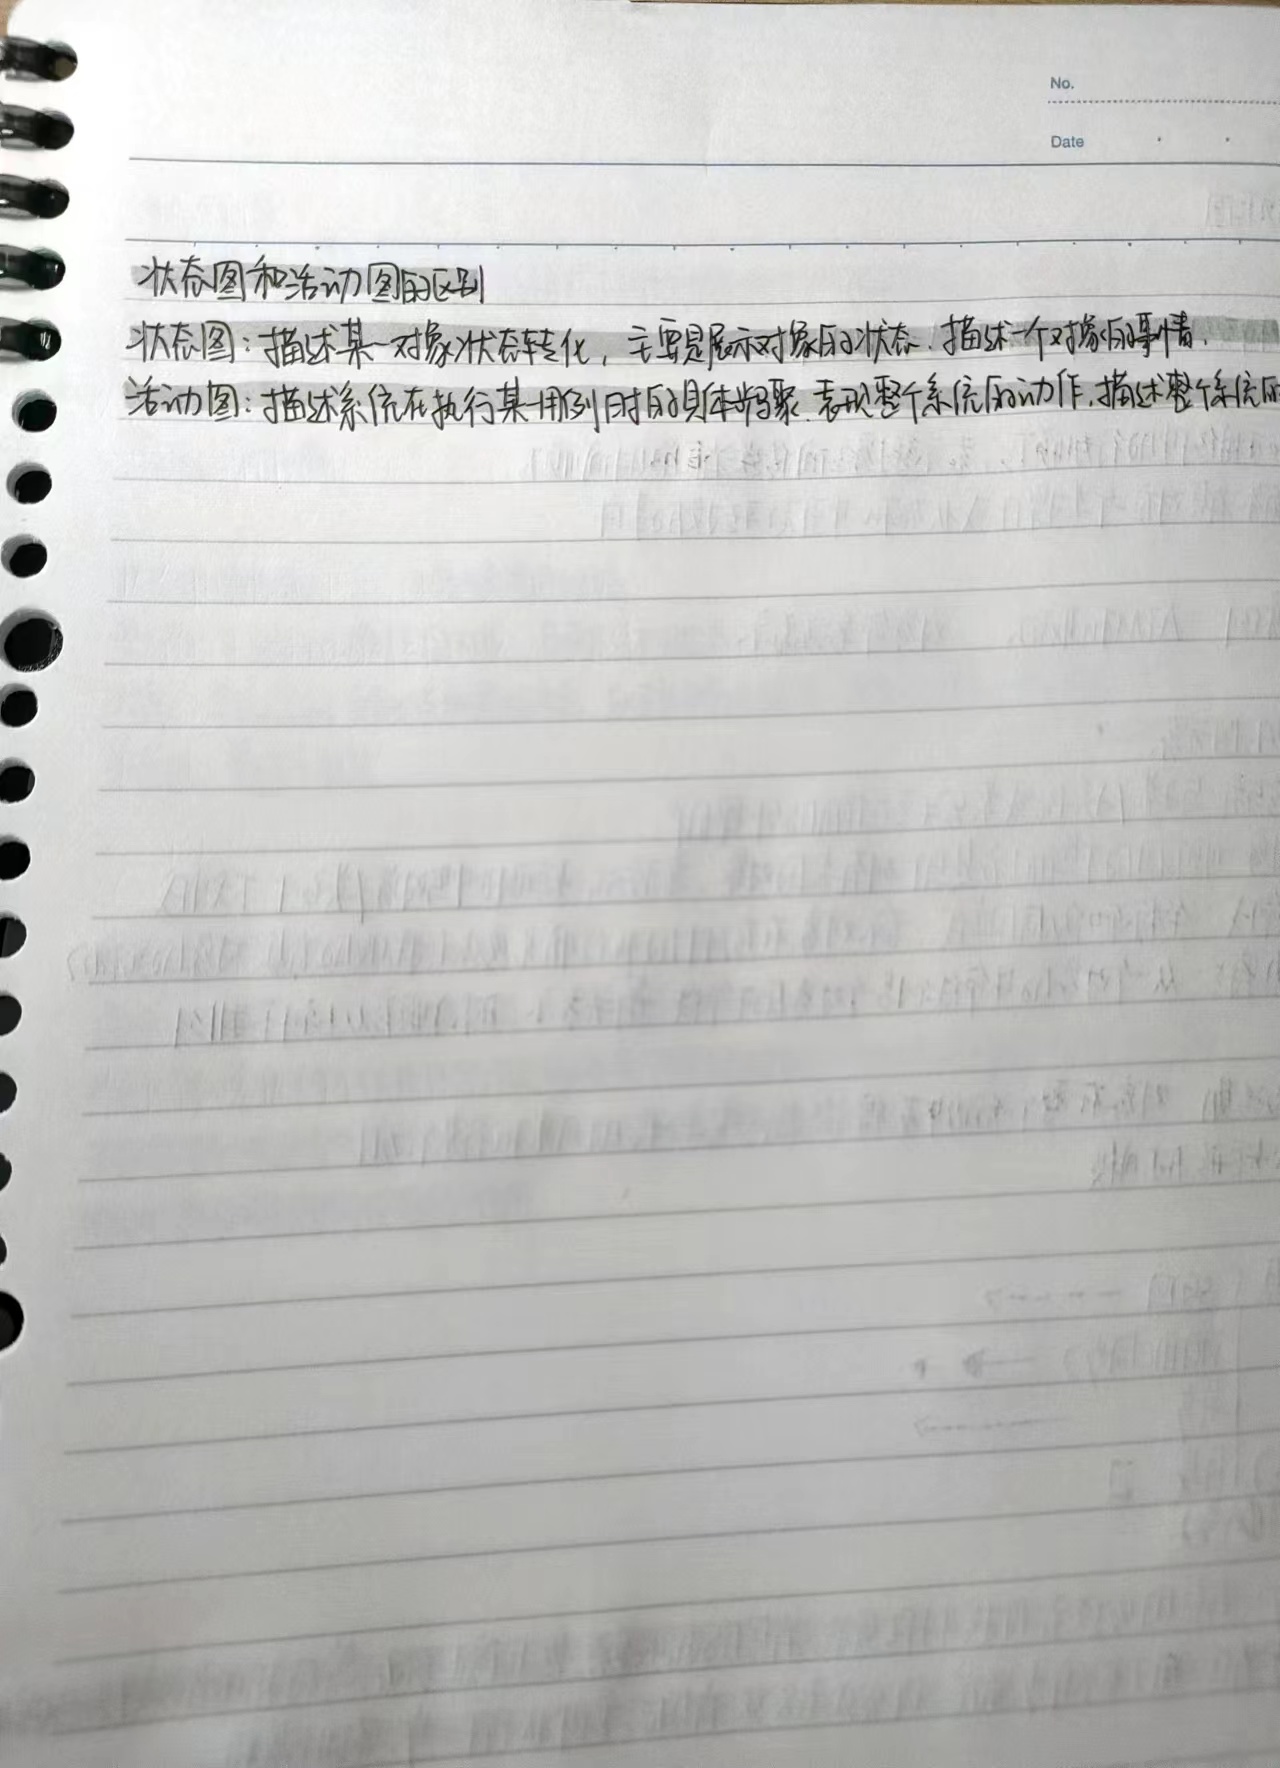 No.
Date
状态图和活动图的区别
状态图：描述某一对象状态转化，主要是展示对象的状态.描述一个对象的事情.
活动图：描述系统在执行某一用例时的具体步骤.表现整个系统的动作.描述整个系统的